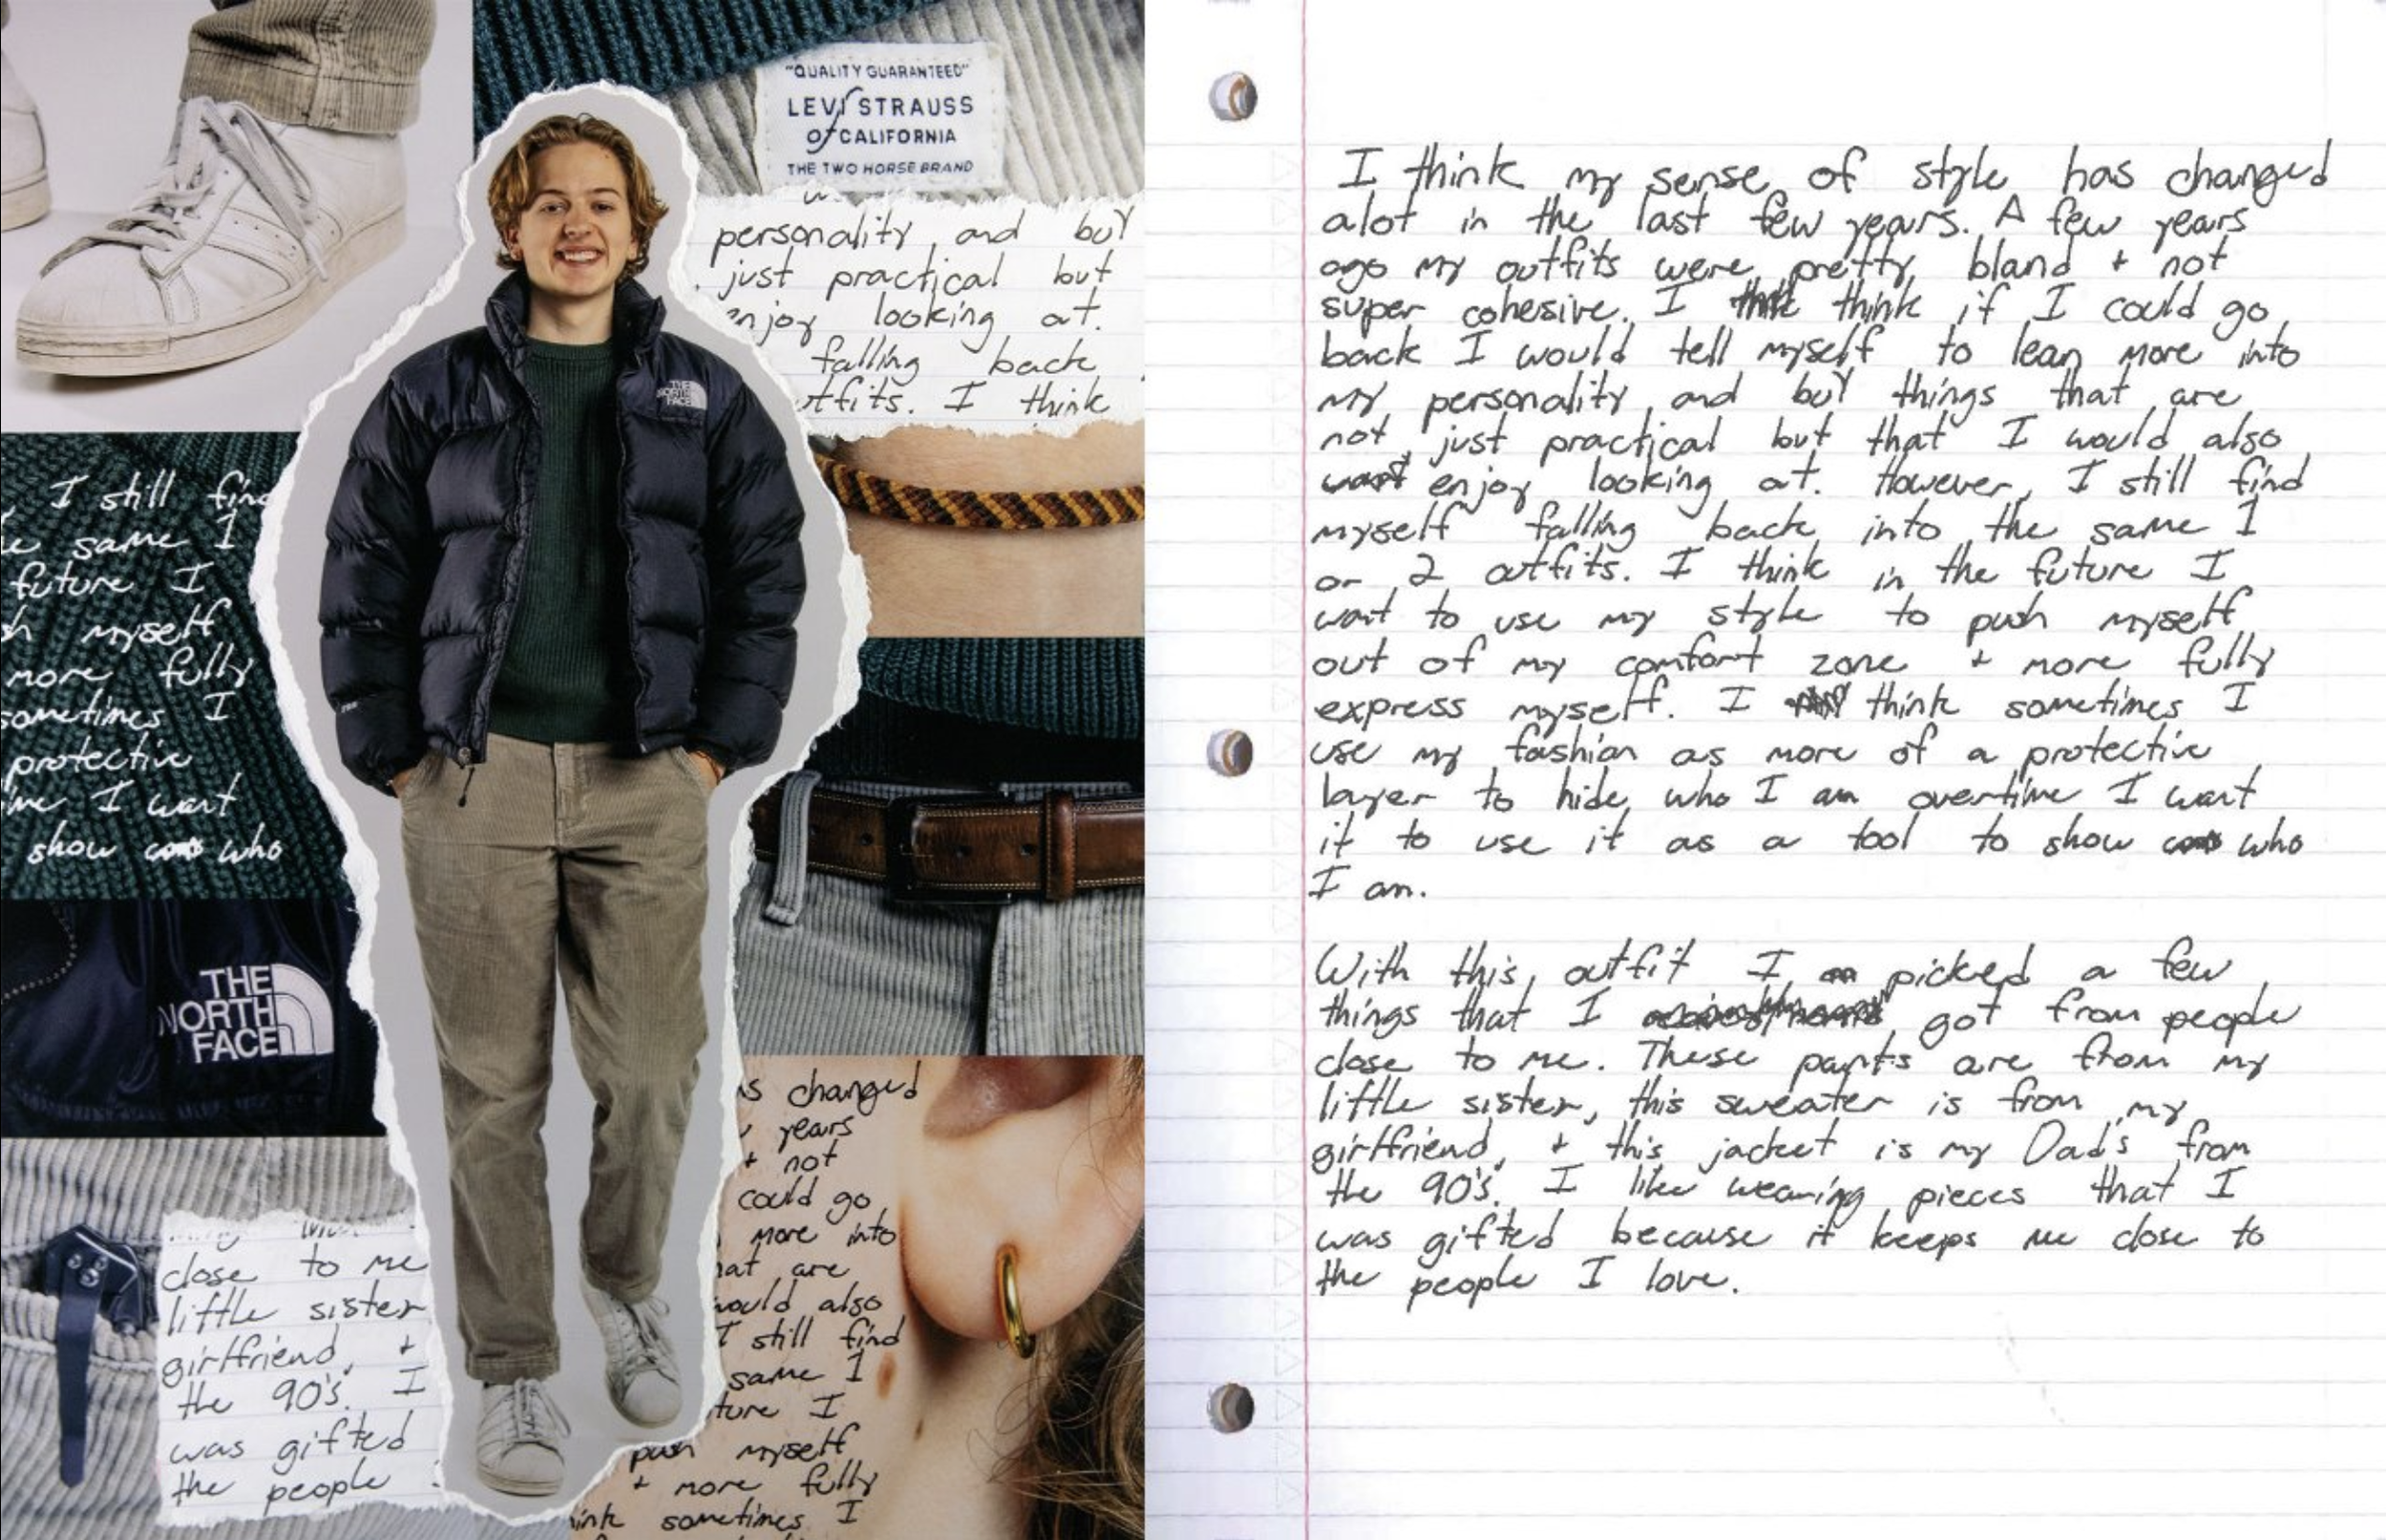 "QUALITY GUARANTEED"
LEVI STRAUSS
of CALIFORNIA
THE TWO HORSE BRAND
personality, and buy
just practical but
enjoy looking at.
falling back
outfits. I think
THE
NORTH
FACE
I still find
same I
future I
myself
more fully
sometimes I
protective
I want
show who
THE
NORTH
FACE
close to me
little sister
girlfriend, +
the 90's. I
was gifted
the people
changed
years
+ not
could go
more into
are
would also
I still find
same 1
I
push myself
+ more fully
sometimes I
I think my sense of style has changed
alot in the last few years. A few years
ago my outfits were pretty bland + not
super cohesive. I think think if I could go
back I would tell myself to lean more into
my personality, and buy things that are
not just practical but that I would also
want enjoy looking at. However, I still find
myself falling back into the same 1
or 2 outfits. I think in the future I
want to use my style to push myself
out of my comfort zone + more fully
express myself. I think sometimes I
use my fashion as more of a protective
layer to hide who I am overtime I want
it to use it as a tool to show who
I am.
With this outfit I am picked a few
things that I got from people
close to me. These pants are from my
little sister, this sweater is from my
girlfriend, + this jacket is my Dad's from
the 90's. I like wearing pieces that I
was gifted because it keeps me close to
the people I love.